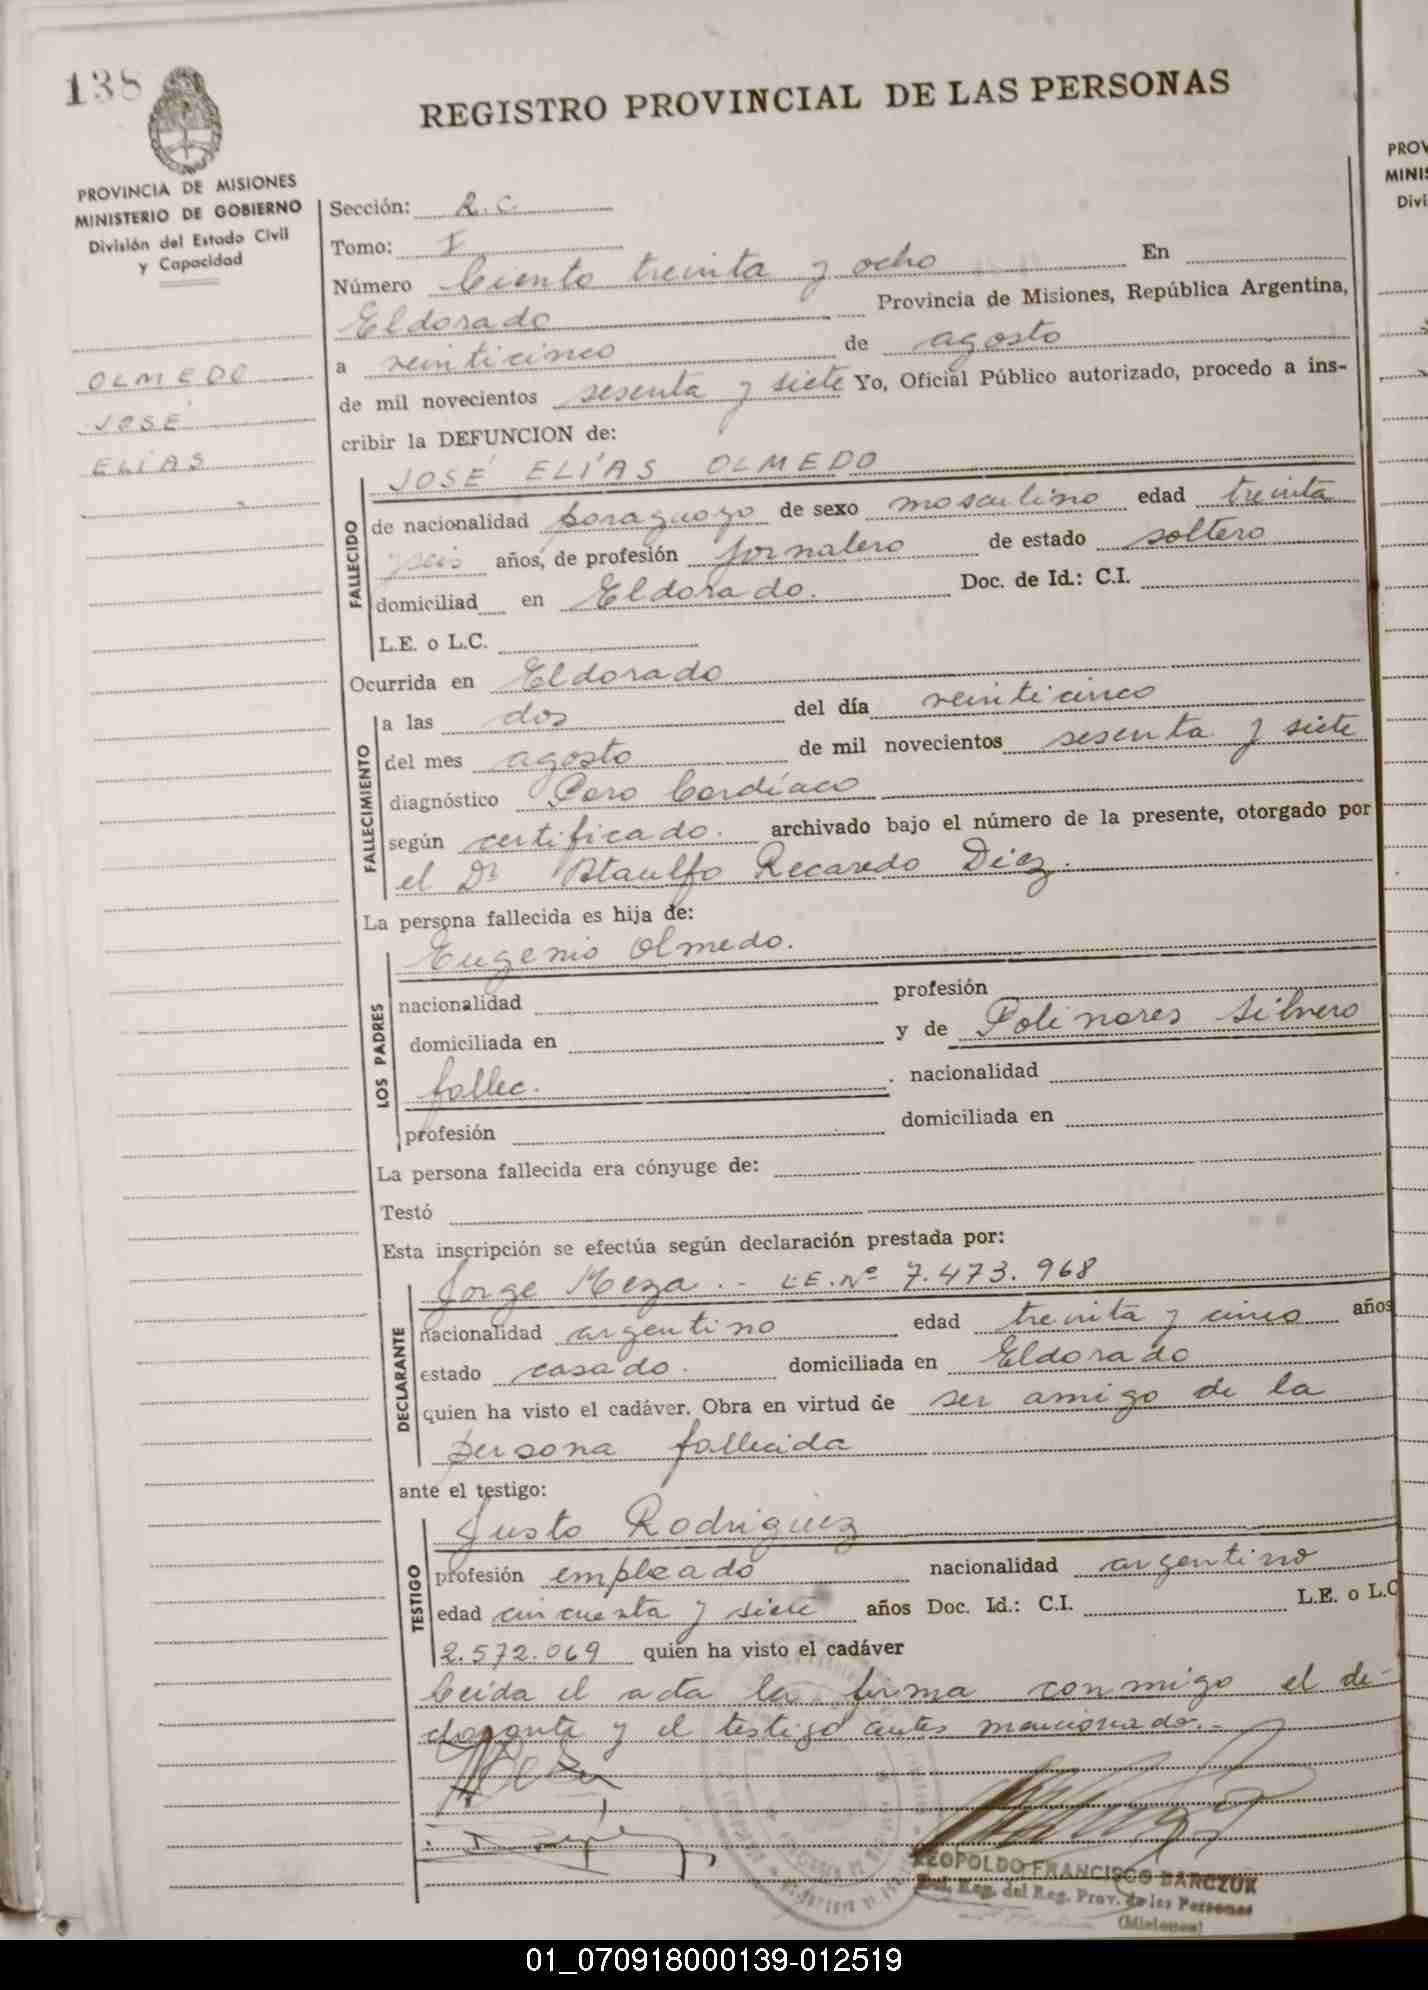 138
REGISTRO PROVINCIAL DE LAS PERSONAS
PROVINCIA DE MISIONES
MINISTERIO DE GOBIERNO
División del Estado Civil
y Capacidad
OLMEDO
JOSÉ
ELÍAS
Sección: R.C.
Tomo: I
Número Ciento treinta y ocho En
Eldorado Provincia de Misiones, República Argentina,
a veinticinco de agosto
de mil novecientos sesenta y siete Yo, Oficial Público autorizado, procedo a ins-
cribir la DEFUNCION de:
JOSÉ ELÍAS OLMEDO
FALLECIDO
de nacionalidad paraguayo de sexo masculino edad treinta
y seis años, de profesión jornalero de estado soltero
domiciliad en Eldorado. Doc. de Id.: C.I.
L.E. o L.C.
Ocurrida en Eldorado
FALLECIMIENTO
a las dos del día veinticinco
del mes agosto de mil novecientos sesenta y siete
diagnóstico Paro Cardíaco
según certificado. archivado bajo el número de la presente, otorgado por
el Dr Ataulfo Recaredo Diez.
La persona fallecida es hija de:
LOS PADRES
Eugenio Olmedo.
nacionalidad profesión
domiciliada en y de Polinares Silvero
fallec. . nacionalidad
profesión domiciliada en
La persona fallecida era cónyuge de:
Testó
Esta inscripción se efectúa según declaración prestada por:
DECLARANTE
Jorge Meza. - L.E. Nº 7.473.968
nacionalidad argentino edad treinta y cinco años
estado casado. domiciliada en Eldorado
quien ha visto el cadáver. Obra en virtud de ser amigo de la
persona fallecida
ante el testigo:
TESTIGO
Justo Rodriguez
profesión empleado nacionalidad argentino
edad cincuenta y siete años Doc. Id.: C.I. L.E. o L.C
2.572.069 quien ha visto el cadáver
Leida el acta la firma conmigo el de-
clarante y el testigo antes mencionado.-
LEOPOLDO FRANCISCO DARCZUK
Del. Reg. del Reg. Prov. de las Personas
(Misiones)
PROV
MINIS
Divi
01_070918000139-012519